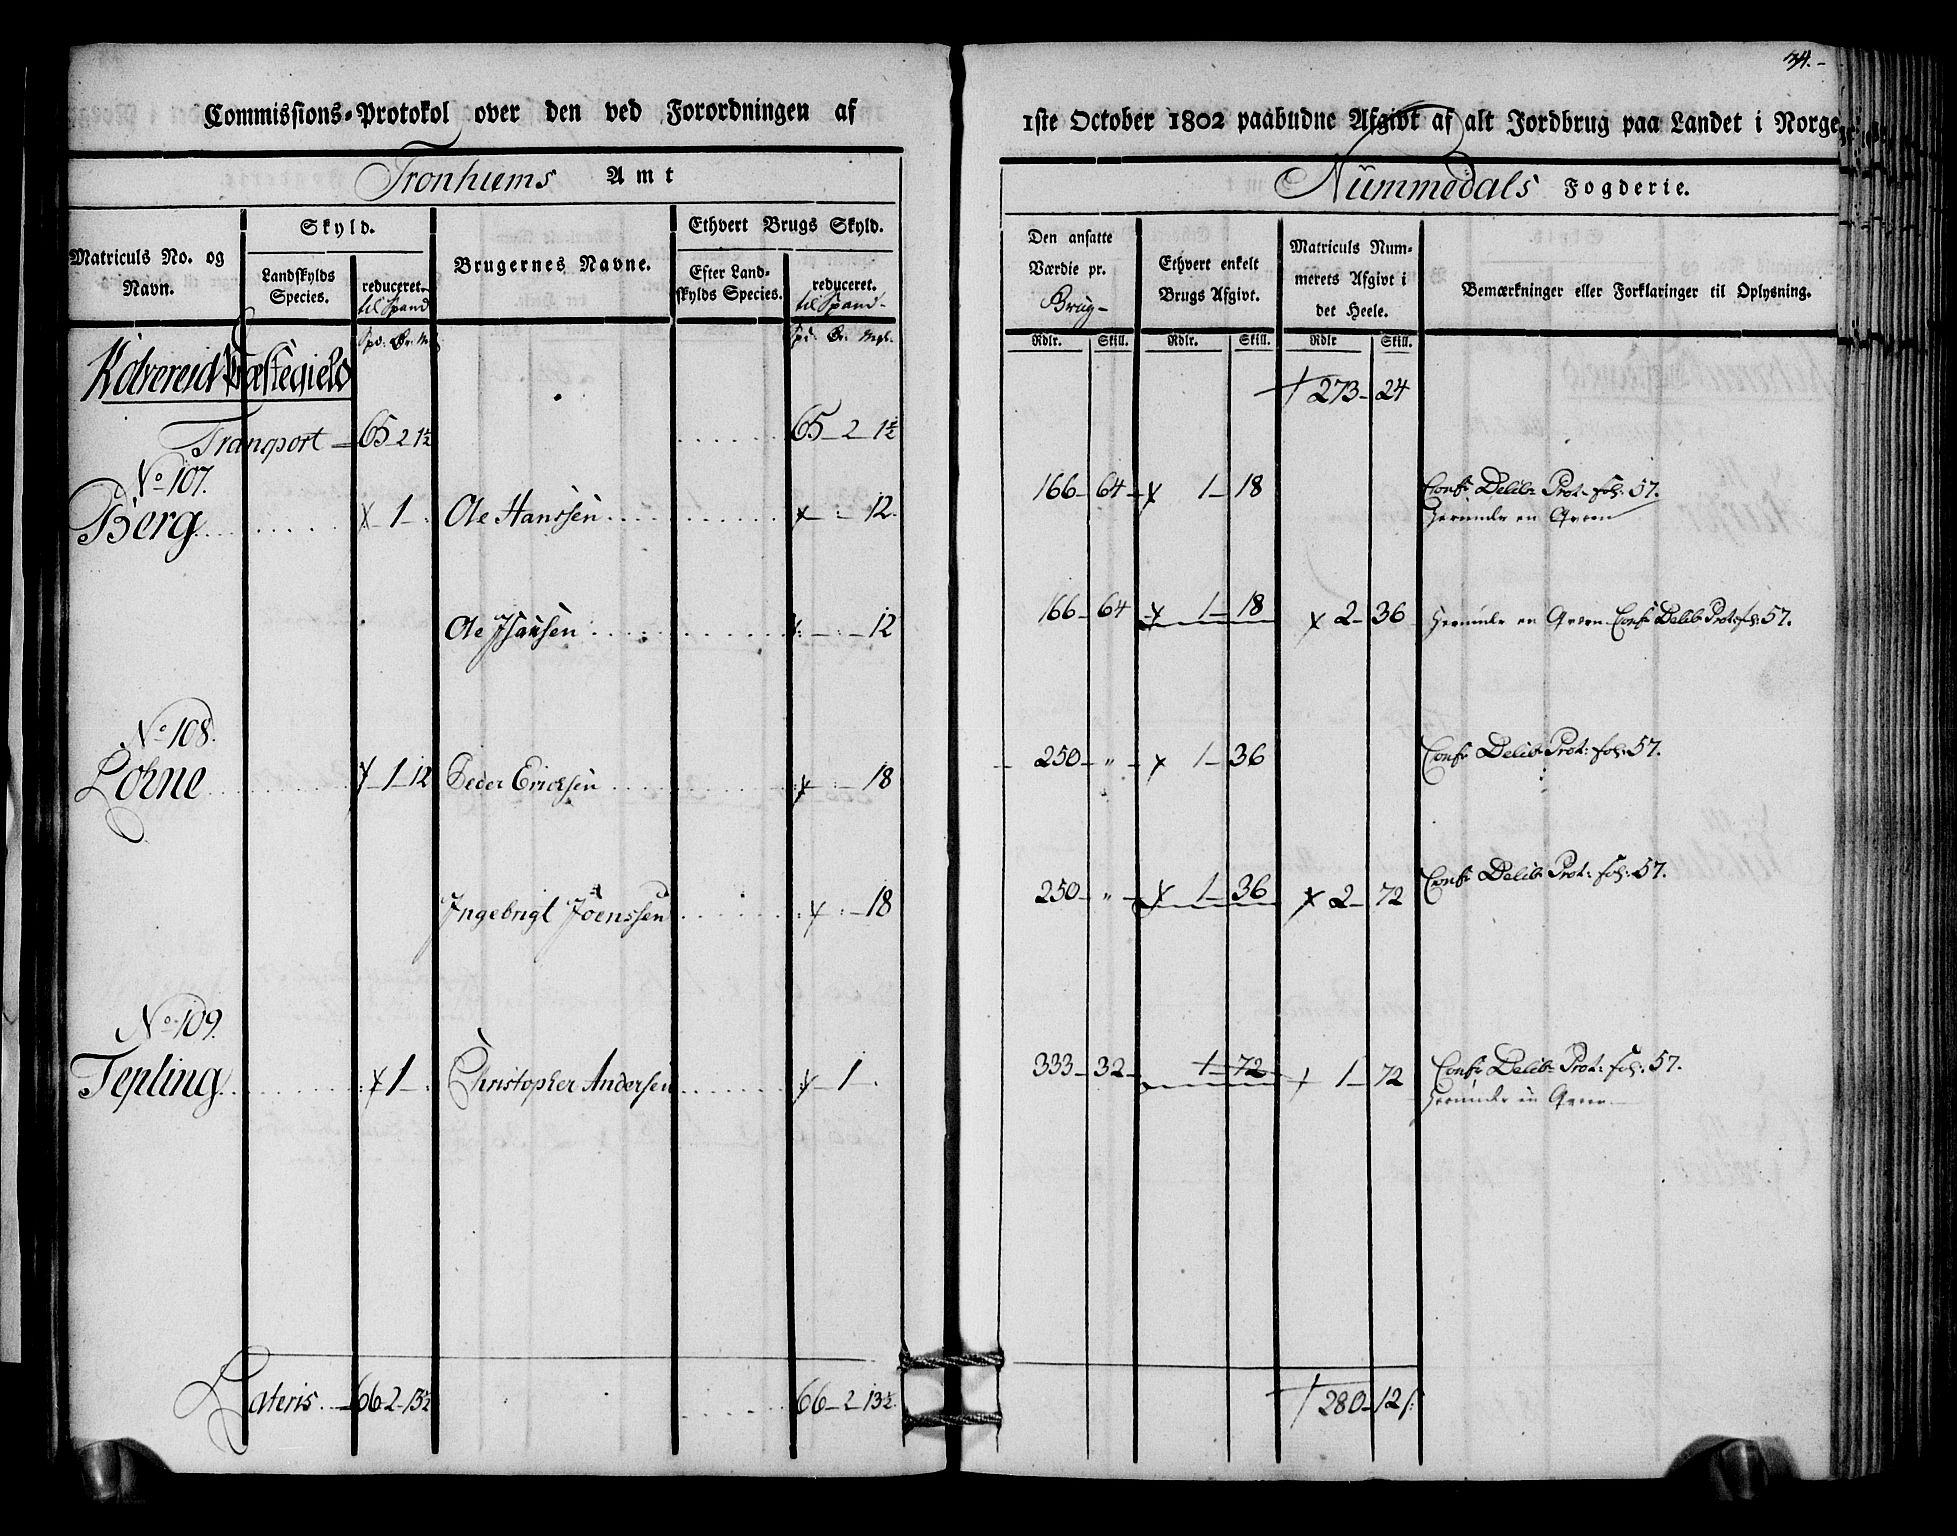 34.-
Commissions-Protokol over den ved Forordningen af 1ste October 1802 paabudne Afgivt af alt Jordbrug paa Landet i Norge
Tronhiems Amt
Nummedals Fogderie.
Matriculs No. og Navn.
Skyld.
Landskylds Species.
reduceret til Spand
Brugernes Navne.
Ethvert Brugs Skyld.
Efter Landskylds Species.
reduceret. til Spand
Den ansatte Værdie pr. Brug-
Ethvert enkelt Brugs Afgivt.
Matriculs Nummerets Afgivt i det Heele.
Bemærkninger eller Forklaringer til Oplysning.
Rdlr. Skill. Rdlr. Skill. Rdlr Skill.
Kolvereid Præstegield 273-24
Transport 65 2 1½ 65-2-1½
No 107.
Berg 1 Ole Hanssen 12. 166-64 1-18 Conf: Delib: Prot: fol: 57.
herunder en Qvern
Ole Isaksen 12 166-64 1-18 2-36 herunder en Qvern Conf: Delib: Prot: fol: 57.
No 108.
1-12 Peder Ericksen 18 250-" 1-36 Conf: Delib: Prot: fol: 57.
Ingebrigt Joenssen 18 250-" 1-36 2-72 Conf: Delib: Prot: fol: 57.
No 109.
Tepling 1 Christopher Andersen 1 333-32 1-72 1-72 Conf: Delib: Prot: fol: 57.
herunder en Qvern
Lateris 66-2-13½ 66-2-13½ 280-12